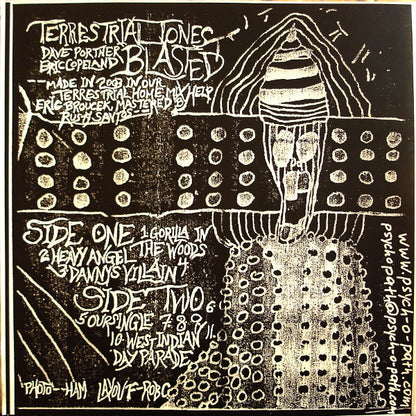 TERRESTRIAL TONES
DAVE PORTNER BLASTED
ERIC COPELAND
--MADE IN 2003 IN OUR
TERRESTRIAL HOME. MIX HELP
ERIC BROUCEK, MASTERED BY
RUSTY SANTOS--
SIDE ONE 1 GORILLA IN
THE WOODS
2 HEAVY ANGEL
3 DANNYS VILLAIN 4
SIDE TWO 6
5 OURSINGLE 7 8 9
10 WEST INDIAN 11
DAY PARADE
PHOTO--HAM LAYOUT-ROB C
www.psych-o-path.com
psychopath@psych-o-path.com